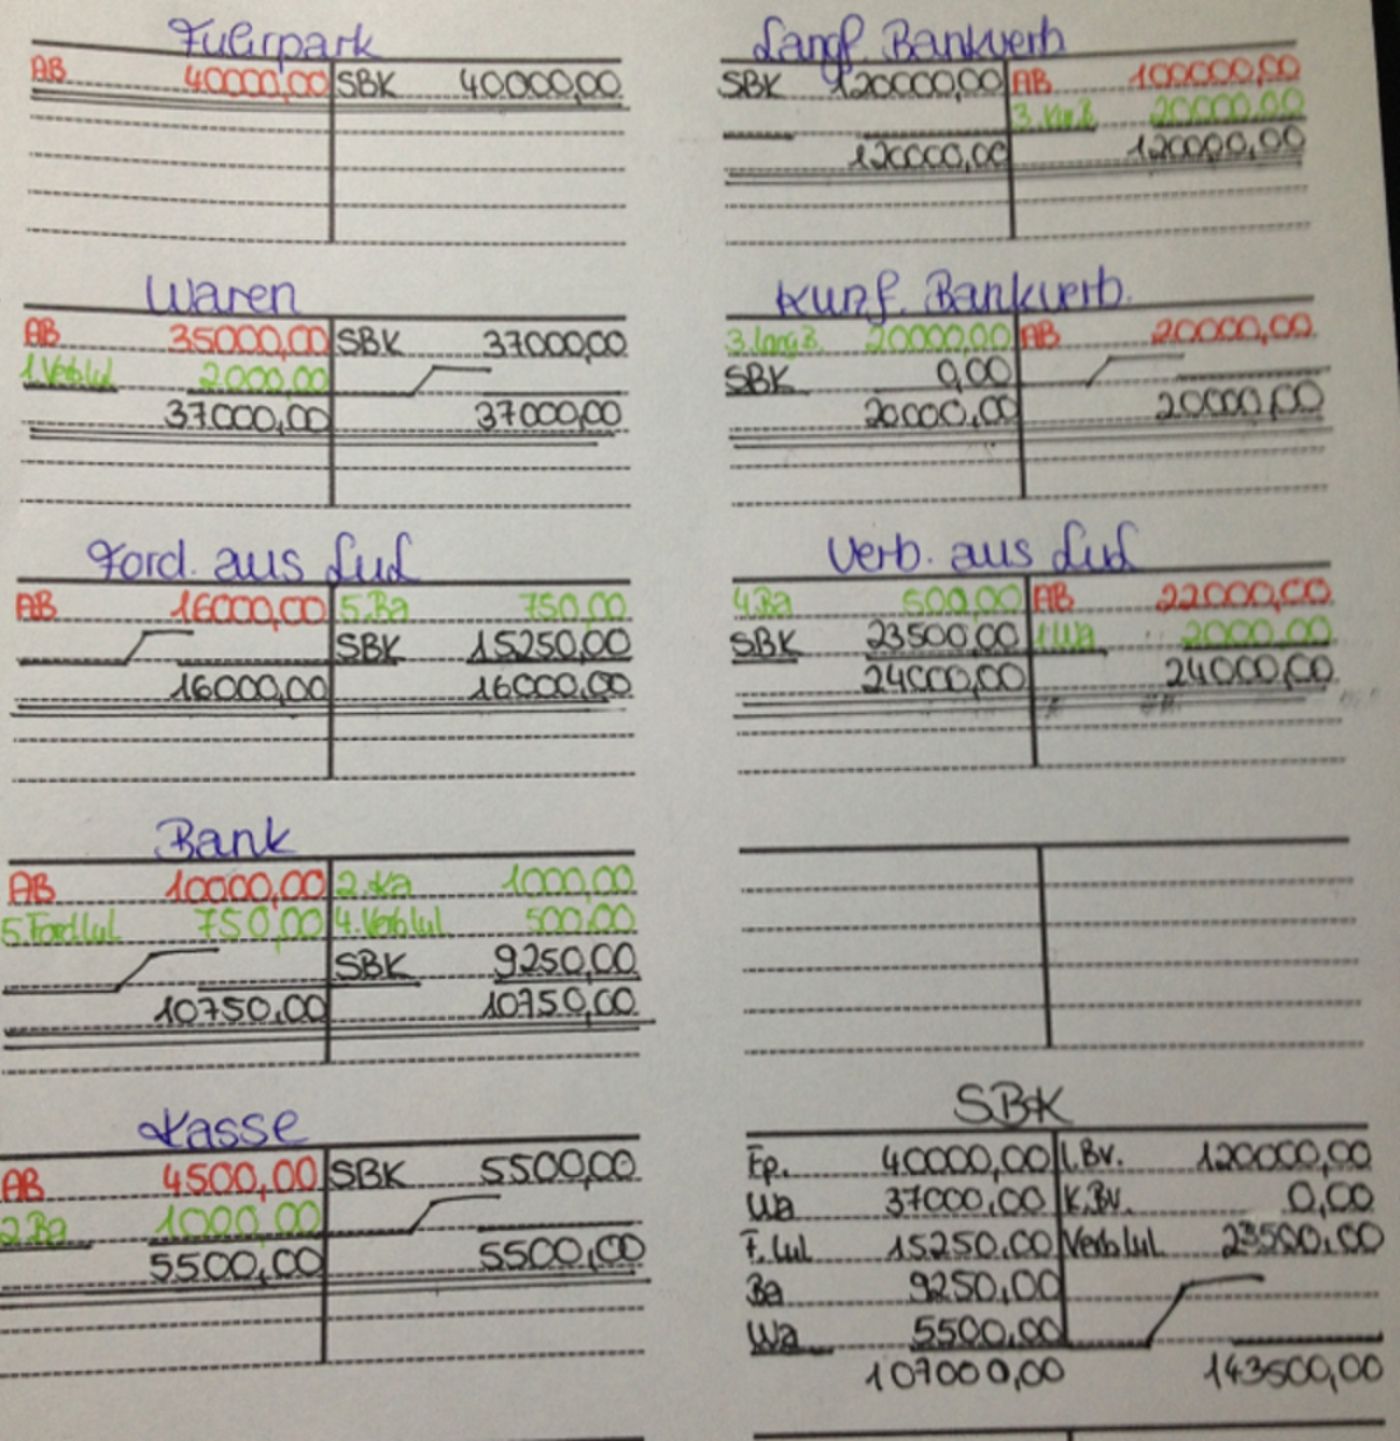 Fuhrpark
AB 40000,00 SBK 40000,00
Waren
AB 35000,00 SBK 37000,00
1.Verb lul 2000,00
37000,00 37000,00
Ford. aus LuL
AB 16000,00 5.Ba 750,00
SBK 15250,00
16000,00 16000,00
Bank
AB 10000,00 2.Ka 1000,00
5.Ford.lul 750,00 4.Verb lul 500,00
SBK 9250,00
10750,00 10750,00
Kasse
AB 4500,00 SBK 5500,00
2.Ba 1000,00
5500,00 5500,00
Langf. Bankverb
SBK 120000,00 AB 100000,00
3. 20000,00
120000,00 120000,00
Kurzf. Bankverb.
3.lang B. 20000,00 AB 20000,00
SBK 0,00
20000,00 20000,00
Verb. aus LuL
4.Ba 500,00 AB 22000,00
SBK 23500,00 1.Wa 2000,00
24000,00 24000,00
SBK
Fp. 40000,00 l.Bv. 120000,00
Wa 37000,00 K.Bv. 0,00
F. lul 15250,00 Verb lul 23500,00
Ba 9250,00
Wa 5500,00
107000,00 143500,00